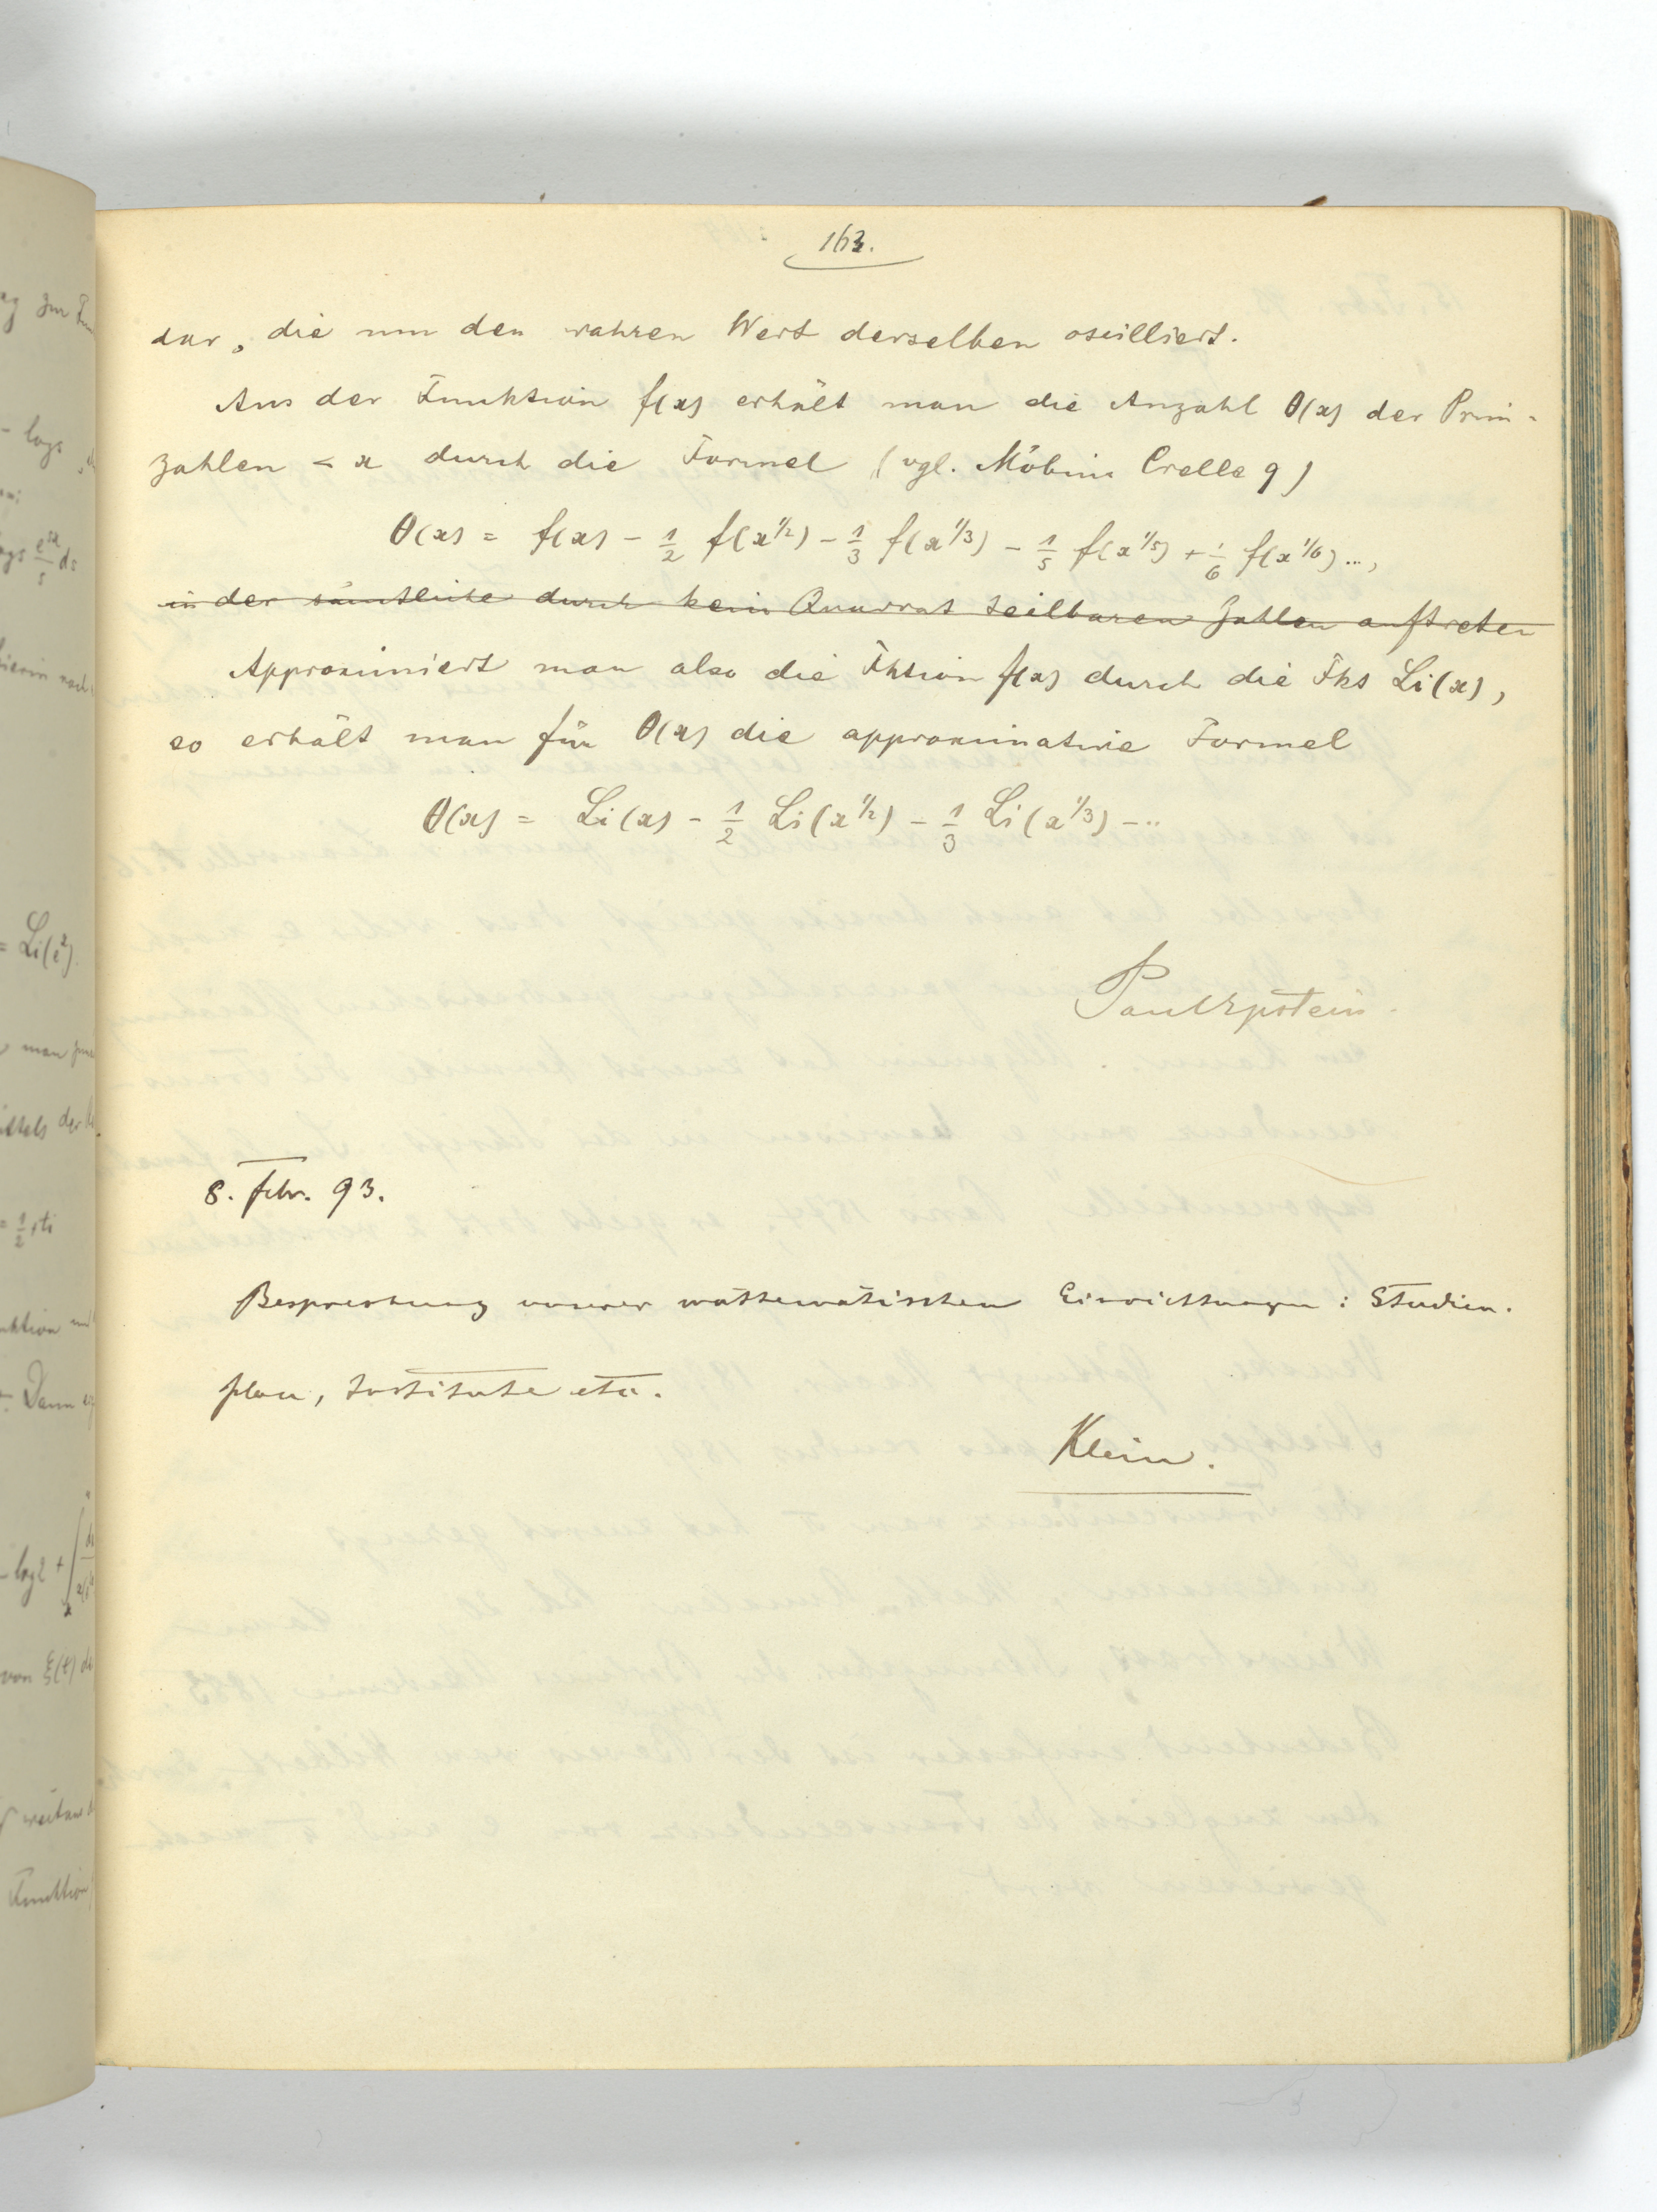 163.
dar, die um den wahren Wert derselben oscilliert.
Aus der Funktion f(x) erhält man die Anzahl θ(x) der Prim-
zahlen < x durch die Formel (vgl. Möbius Crelle 9)
θ(x) = f(x) - 1/2 f(x^1/2) - 1/3 f(x^1/3) - 1/5 f(x^1/5) + 1/6 f(x^1/6) ...,
in der sämtliche durch kein Quadrat teilbaren Zahlen auftreten
Approximiert man also die Fktion f(x) durch die Fkt Li(x),
so erhält man für θ(x) die approximative Formel
θ(x) = Li(x) - 1/2 Li(x^1/2) - 1/3 Li(x^1/3) - ..
Paul Epstein.
8. Febr. 93.
Besprechung unserer mathematischen Einrichtungen: Studien-
plan, Institute etc.
Klein.